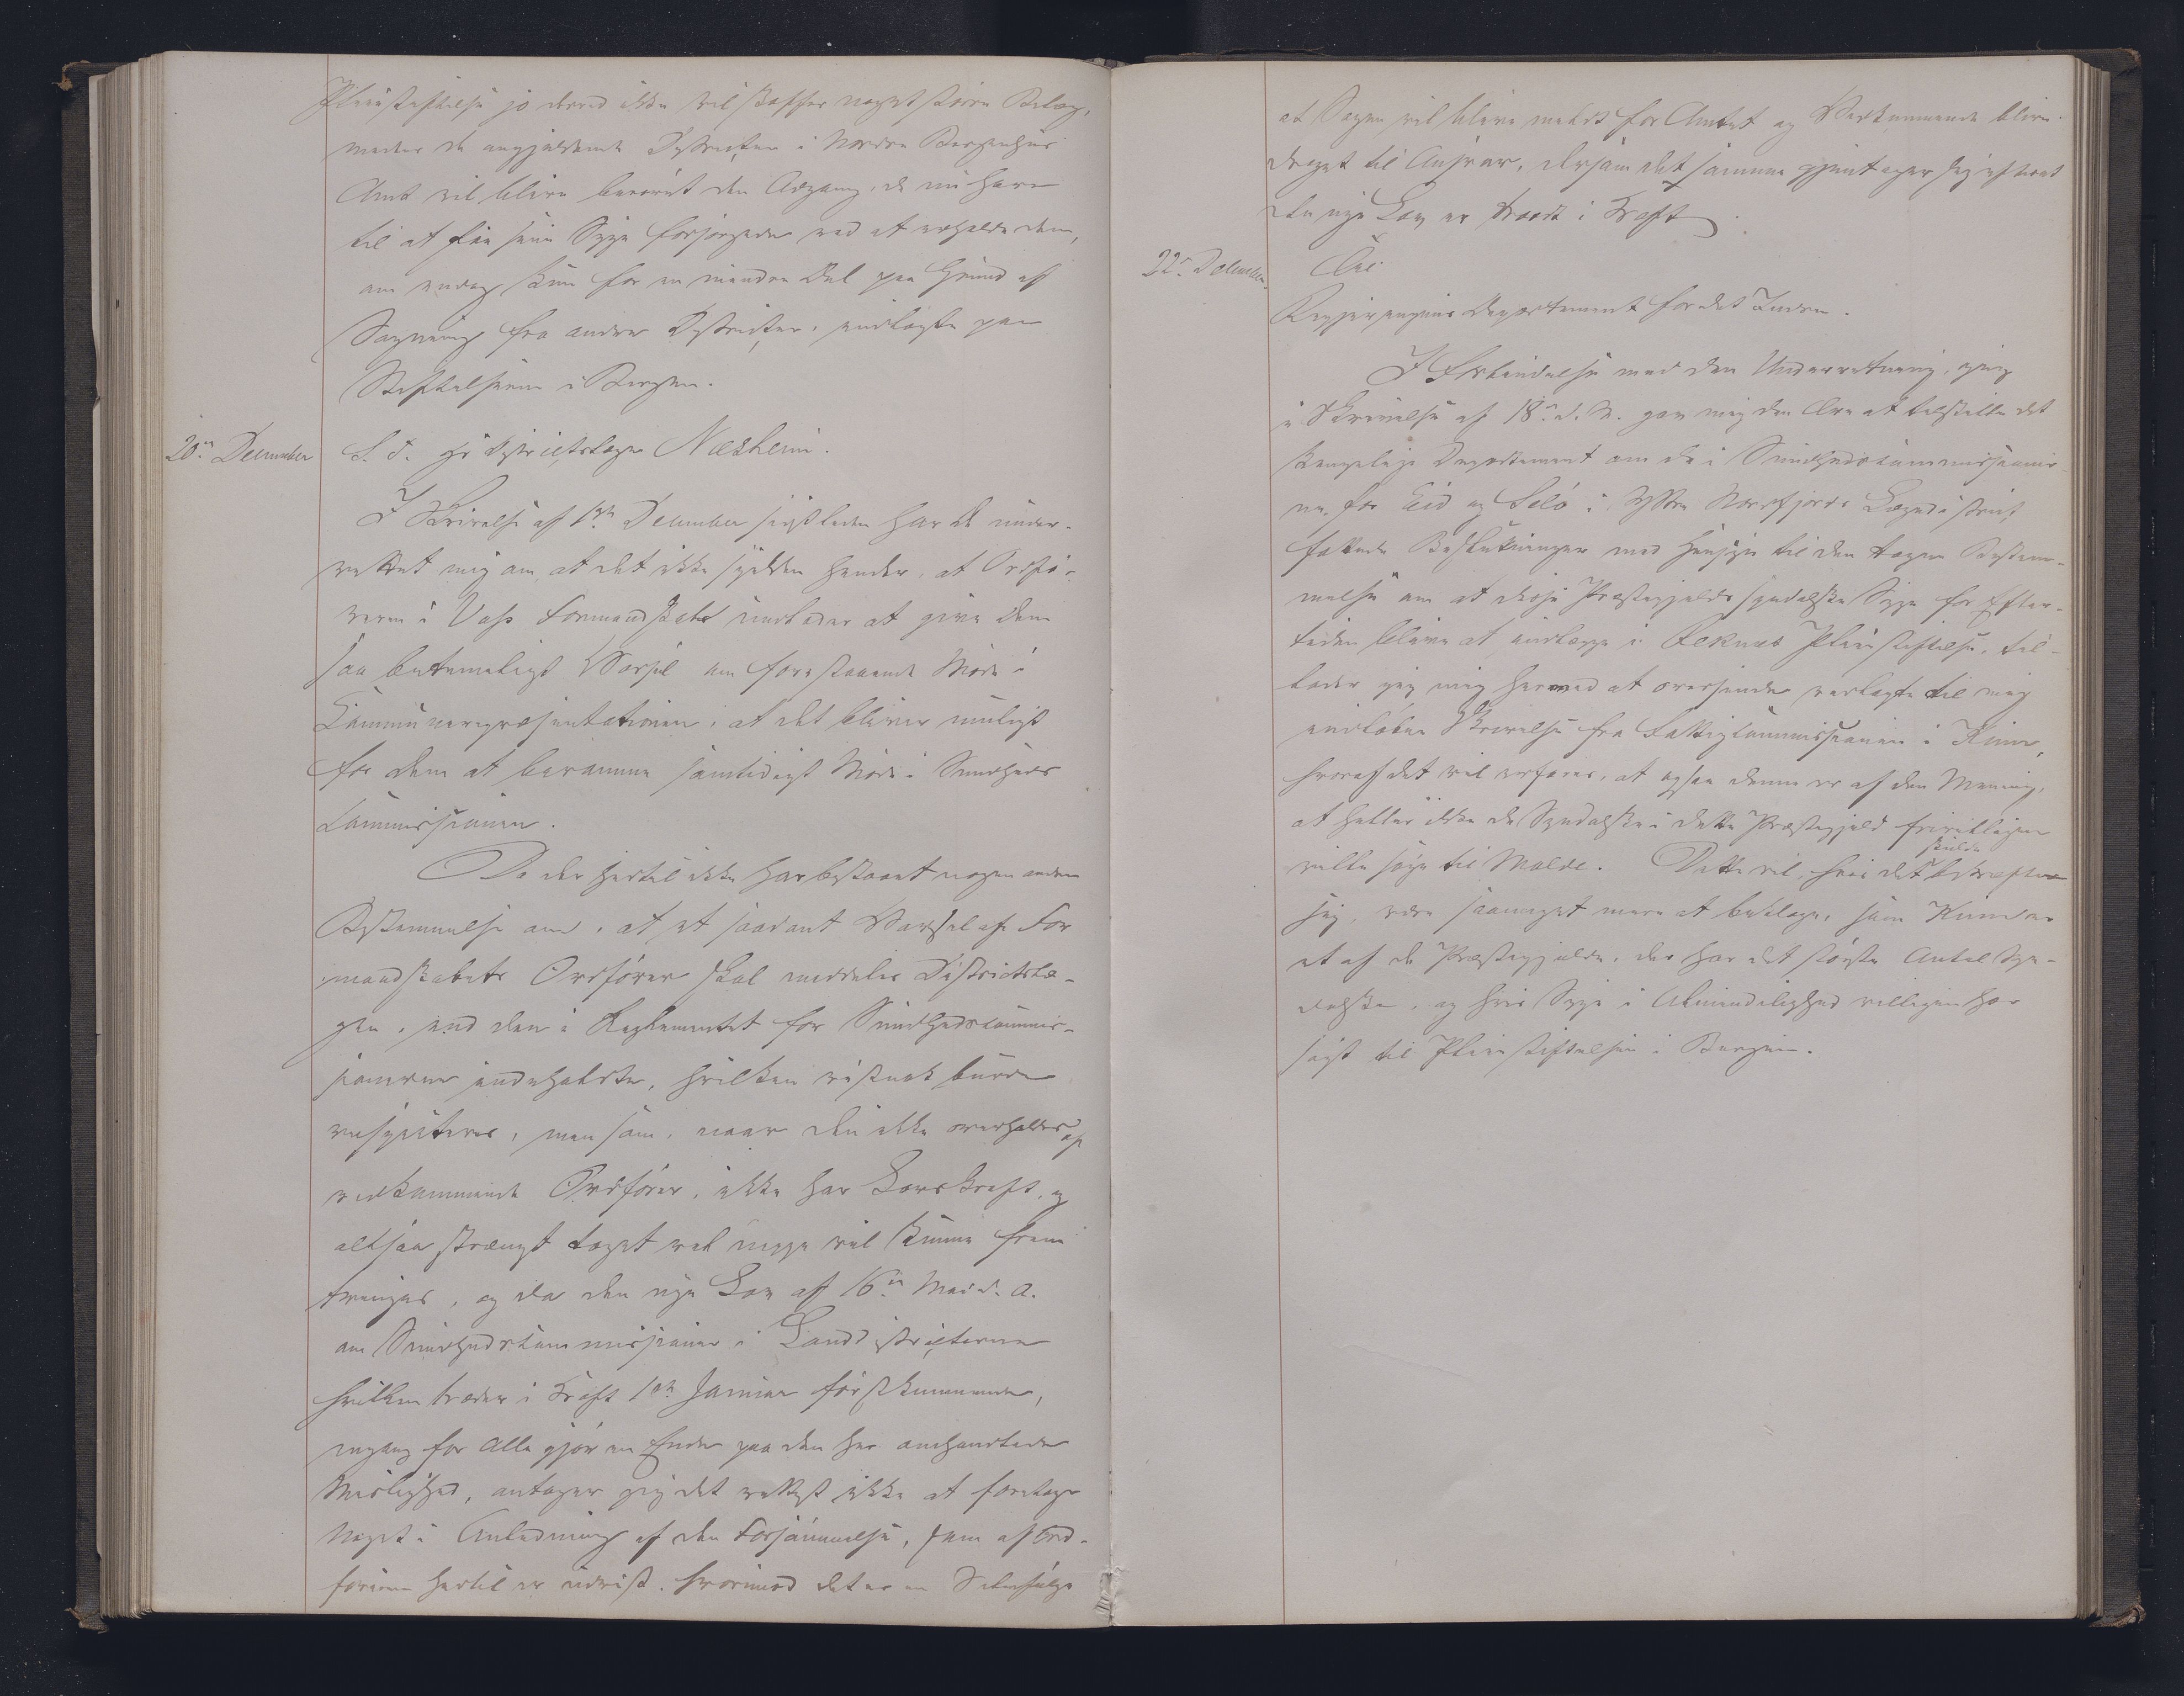 Pleiestiftelse jo derved ikke vil skaffes noget større Belæg,
medens de angjældende Districter i Nordre Bergenhus
Amt vil blive berøvet den Adgang, de nu have
til at faa sine Syge forsørgede ved at erholde dem,
om endog kun for en mindre Del paa Grund af
Søgning fra andre Districter, indlagte paa
Stiftelserne i Bergen.
20de December
S. T. Hr Districtslæge Næsheim.
I Skrivelse af 1ste December sidstleden har De under-
rettet mig om, at det ikke sjelden hender, at Ordfø-
reren i Voss Formandskab undlader at give Dem
saa betimeligt Varsel om forestaaende Møde i
Communerepræsentationen, at det bliver muligt
for Dem at beramme samtidigt Møde i Sundheds
Commissionen.
Da der hertil ikke har bestaaet nogen anden
Bestemmelse om, at et saadant Varsel af For
mandskabets Ordfører skal meddeles Districtslæ-
gen, end den i Reglementet for Sundhedscommis-
sionerne indeholdte, hvilken vistnok burde
respecteres, men som, naar den ikke overholdes af
vedkommende Ordfører, ikke har Lovskraft, og
altsaa strængt taget vel neppe vil kunne frem
tvinges, og da den nye Lov af 16de Mai d. A.
om Sundhedskommissioner i Landdistricterne
hvilken træder i Kraft 1ste Januar førstkommende,
engang for Alle gjør en Ende paa den her omhandlede
Mislighed, antager jeg det rettest ikke at foretage
Noget i Anledning af den Forsømmelse, som af Ord-
føreren hertil er udvist. Hvorimod det er en Selvfølge
at Sagen vil blive meldt for Amtet og Vedkommende blive
draget til Ansvar, dersom det samme gjentager sig efterat
den nye Lov er traadt i Kraft.
22de December.
Til
Regjeringens Departement for det Indre.
I Forbindelse med den Underretning, jeg
i Skrivelse af 18de d. M. gav mig den Ære at tilstille det
kongelige Departement om de i Sundhedskommissioner
ne for Eid og Selø i Ytre Nordfjords Lægedistrict
fattede Beslutninger med Hensyn til den tagne Bestem-
melse om at disse Præstegjelds spedalske Syge for Efter-
tiden bliver at indlægge i Reknes Pleiestiftelse, til-
lader jeg mig herved at oversende vedlagte til mig
indløbne Skrivelse fra Fattigkommissionen i Kinn,
hvoraf det vil erfares, at ogsaa denne er af den Mening,
at heller ikke de Spedalske i dette Præstegjeld frivilligen
ville søge til Molde. Dette vil, hvis det skulde bekræfte
sig, være saameget mere at beklage, som Kinn er
et af de Præstegjelde, der har det største Antal Spe-
dalske, og hvis Syge i Almindelighed villigen har
søgt til Pleiestiftelsen i Bergen.